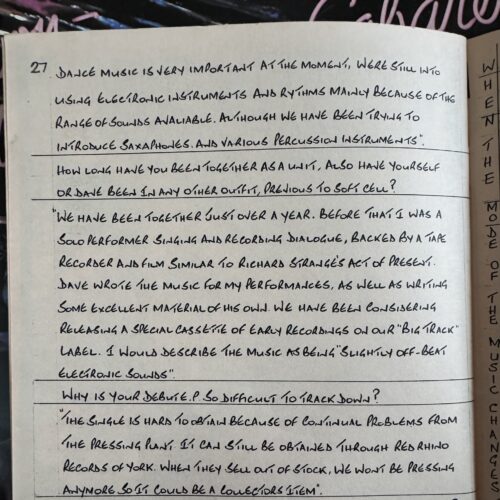 Cabare
27
DANCE MUSIC IS VERY IMPORTANT AT THE MOMENT, WERE STILL INTO
USING ELECTRONIC INSTRUMENTS AND RYTHMS MAINLY BECAUSE OF THE
RANGE OF SOUNDS AVALIABLE. ALTHOUGH WE HAVE BEEN TRYING TO
INTRODUCE SAXAPHONES. AND VARIOUS PERCUSSION INSTRUMENTS".
HOW LONG HAVE YOU BEEN TOGETHER AS A UNIT, ALSO HAVE YOURSELF
OR DAVE BEEN IN ANY OTHER OUTFIT, PREVIOUS TO SOFT CELL?
"WE HAVE BEEN TOGETHER JUST OVER A YEAR. BEFORE THAT I WAS A
SOLO PERFORMER SINGING AND RECORDING DIALOGUE, BACKED BY A TAPE
RECORDER AND FILM SIMILAR TO RICHARD STRANGE'S ACT OF PRESENT.
DAVE WROTE THE MUSIC FOR MY PERFORMANCES, AS WELL AS WRITING
SOME EXCELLENT MATERIAL OF HIS OWN. WE HAVE BEEN CONSIDERING
RELEASING A SPECIAL CASSETTE OF EARLY RECORDINGS ON OUR "BIG TRACK"
LABEL. I WOULD DESCRIBE THE MUSIC AS BEING "SLIGHTLY OFF-BEAT
ELECTRONIC SOUNDS".
WHY IS YOUR DEBUT E.P SO DIFFICULT TO TRACK DOWN?
"THE SINGLE IS HARD TO OBTAIN BECAUSE OF CONTINUAL PROBLEMS FROM
THE PRESSING PLANT IT CAN STILL BE OBTAINED THROUGH RED RHINO
RECORDS OF YORK. WHEN THEY SELL OUT OF STOCK, WE WONT BE PRESSING
ANYMORE SO IT COULD BE A COLLECTORS ITEM".
WHEN THE MODE OF THE MUSIC CHANGES